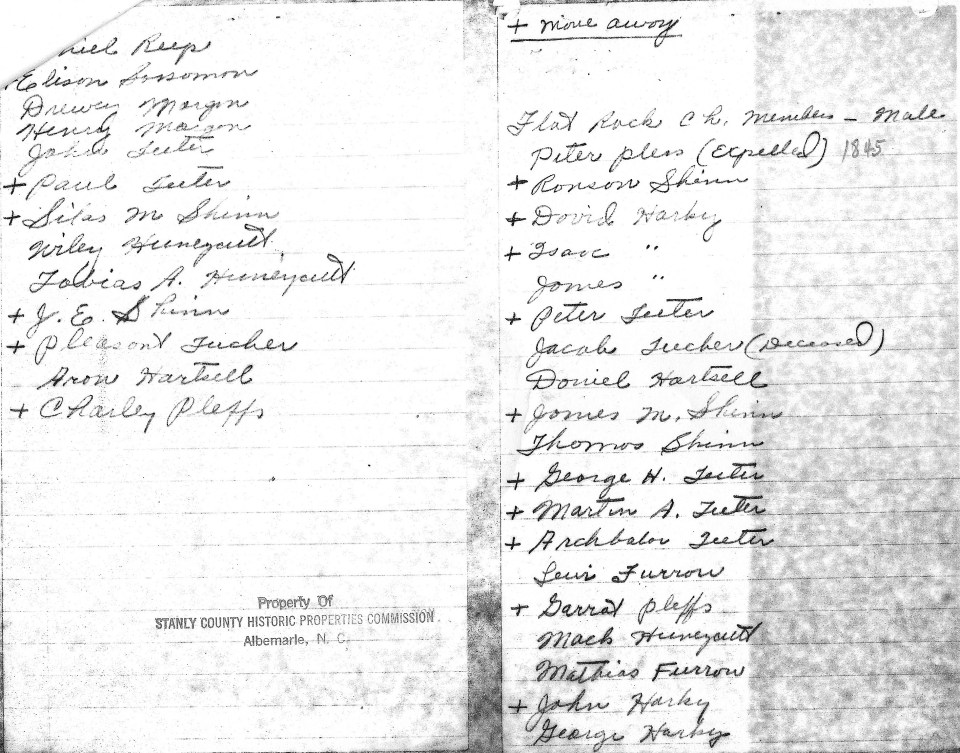 Reep
Elison Sossomon
Drewey Morgan
Henry
John Teeter
+ Paul Teeter
+ Silas M Shinn
Wiley Huneycutt
Tobias A. Huneycutt
+ J. E. Shinn
+ Pleasant Tucker
Aron Hartsell
+ Charley Pleffs
Property Of
STANLY COUNTY HISTORIC PROPERTIES COMMISSION
Albemarle, N. C.
+ move away
Flat Rock Ch. Members - Male
Peter Pless (Expelled) 1845
+ Ronson Shinn
+ David Harky
+ Isaac "
James "
+ Peter Teeter
Jacob Tucker (Deceased)
Daniel Hartsell
+ James M. Shinn
Thomas Shinn
+ George H. Teeter
+ Martin A. Teeter
+ Teeter
Levi Furrow
+ Garrat Pleffs
Mack Huneycutt
Mathias Furrow
+ John Harky
George Harky